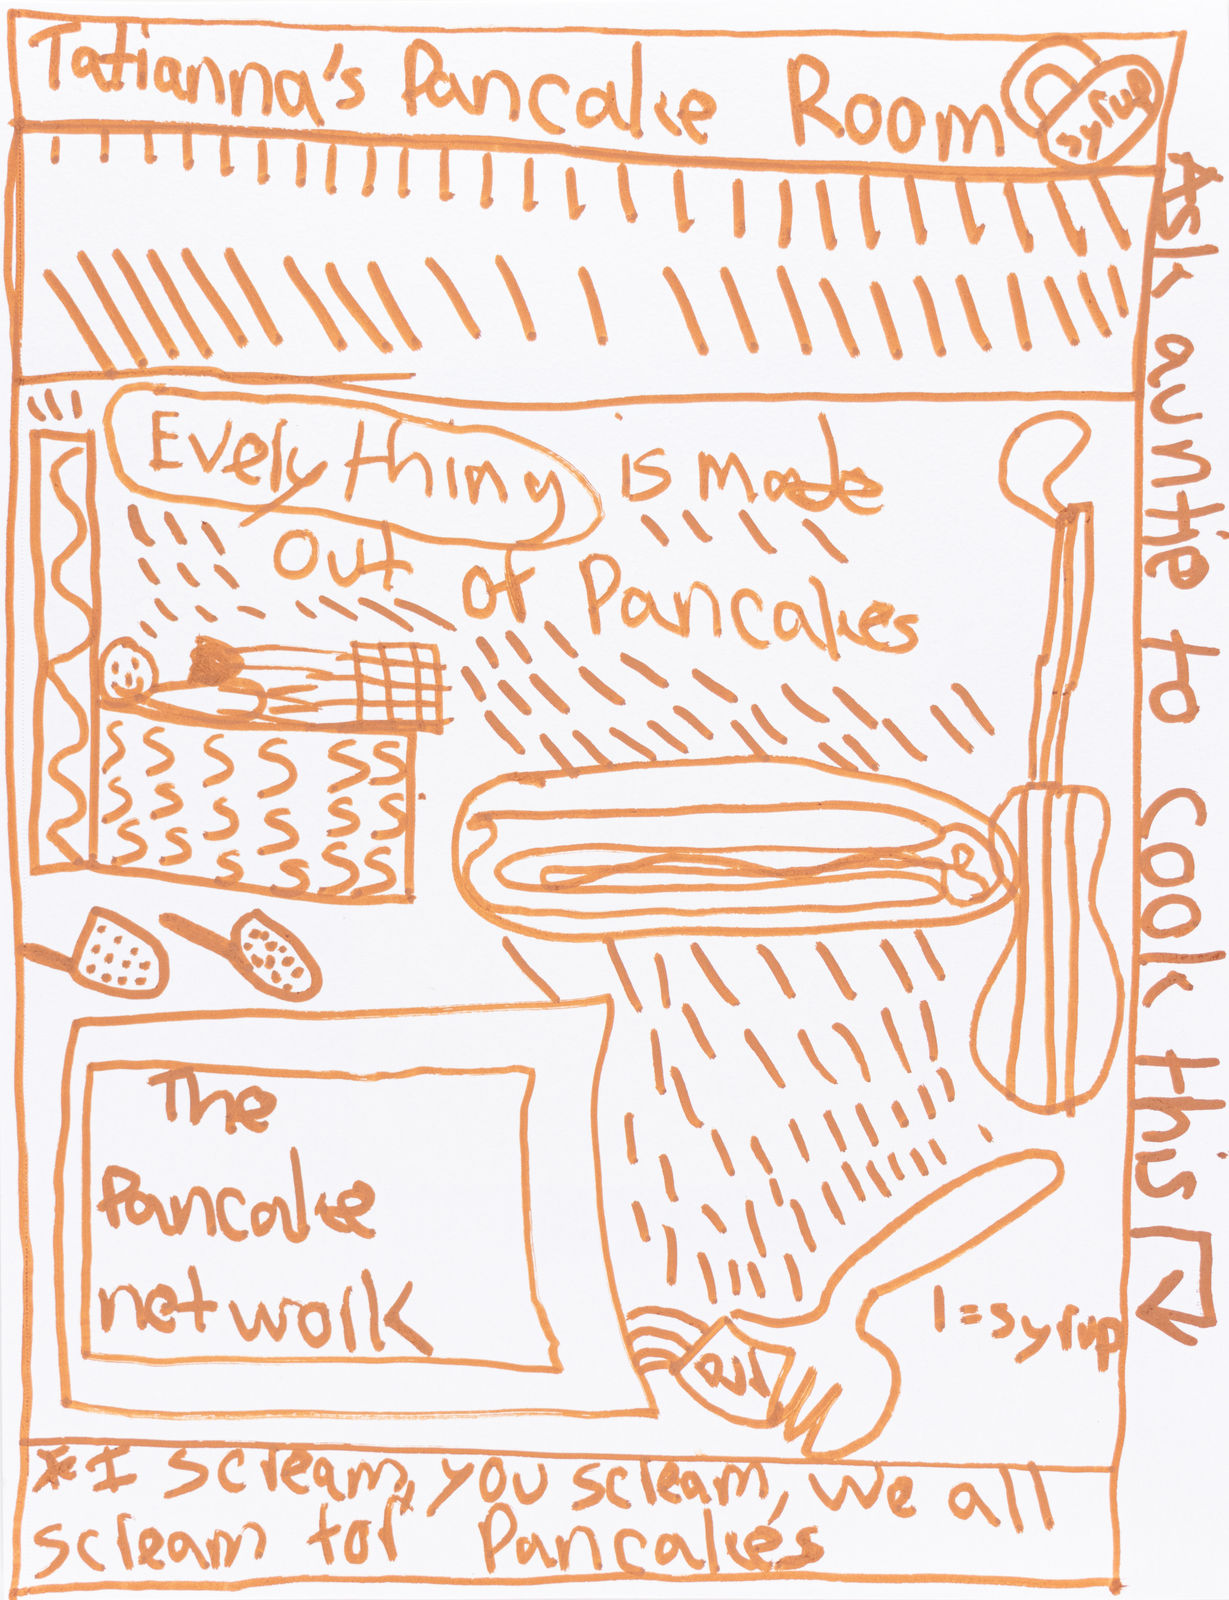 Tatianna's Pancake Room
syrup
Everything is made
out of Pancakes
The
Pancake
network
1=syrup
*I scream, you scream, we all
scream for Pancakes
Ask auntie to cook this